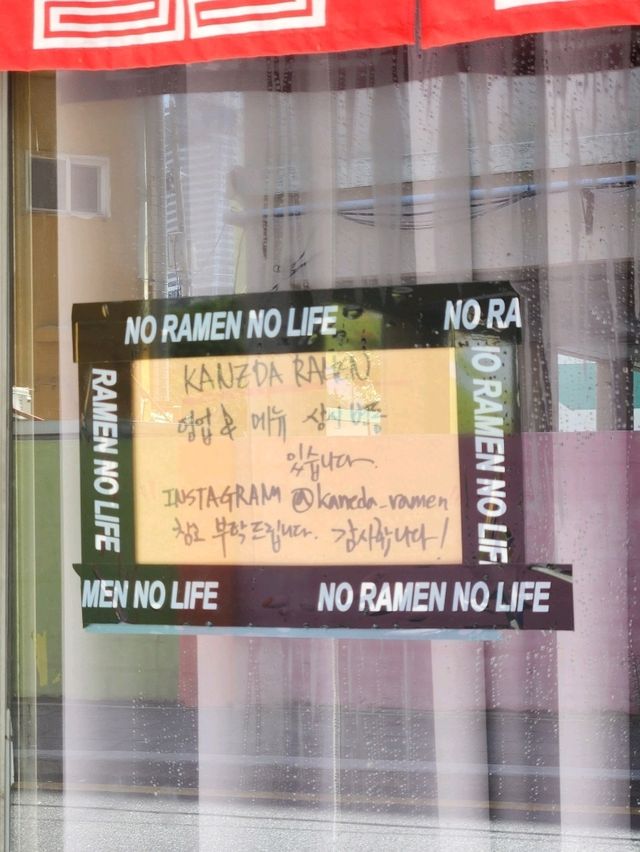 NO RAMEN NO LIFE
NO RA
RAMEN NO LIFE
KANEDA RAMEN
영업 & 메뉴 상시 변동
있습니다.
INSTAGRAM @kaneda_ramen
참고 부탁드립니다. 감사합니다!
NO RAMEN NO LIF
MEN NO LIFE
NO RAMEN NO LIFE